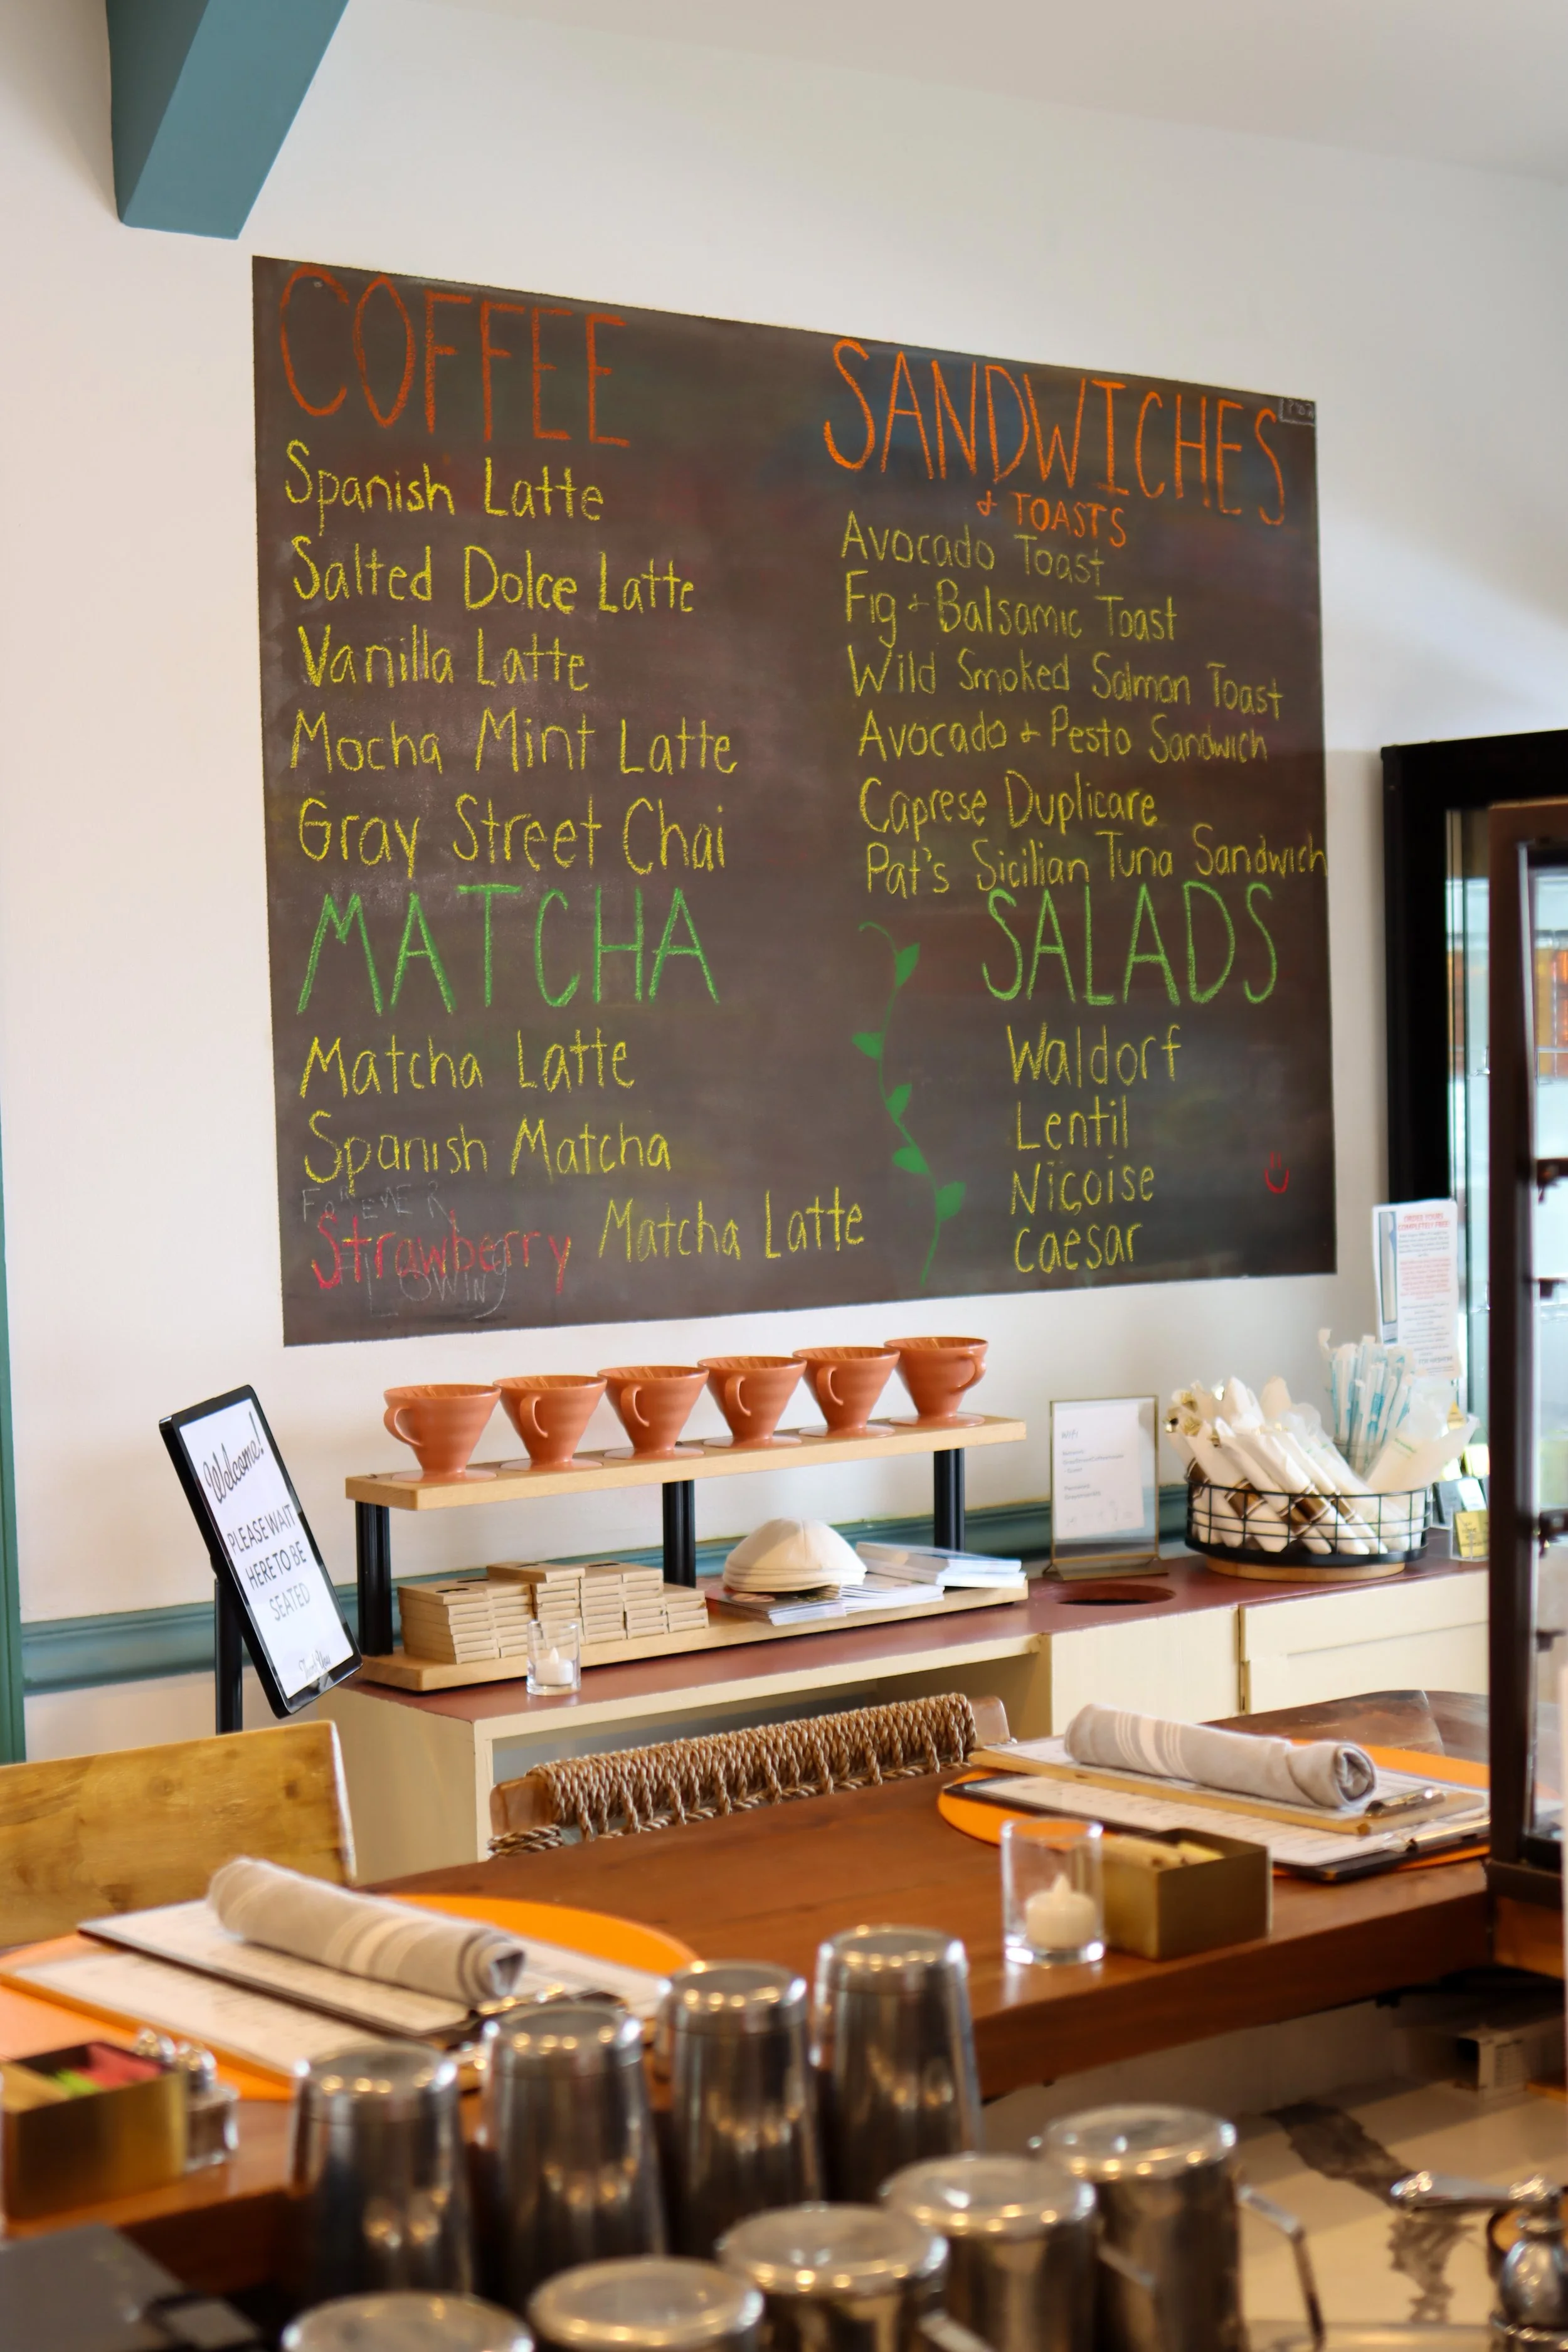 COFFEE
Spanish Latte
Salted Dolce Latte
Vanilla Latte
Mocha Mint Latte
Gray Street Chai
MATCHA
Matcha Latte
Spanish Matcha
FOREVER
Strawberry Matcha Latte
FLOWING
SANDWICHES
+ TOASTS
Avocado Toast
Fig + Balsamic Toast
Wild Smoked Salmon Toast
Avocado + Pesto Sandwich
Caprese Duplicare
Pat's Sicilian Tuna Sandwich
SALADS
Waldorf
Lentil
Niçoise
Caesar
Welcome!
PLEASE WAIT
HERE TO BE
SEATED
Thank You
ORDER YOURS
COMPLETELY FREE!